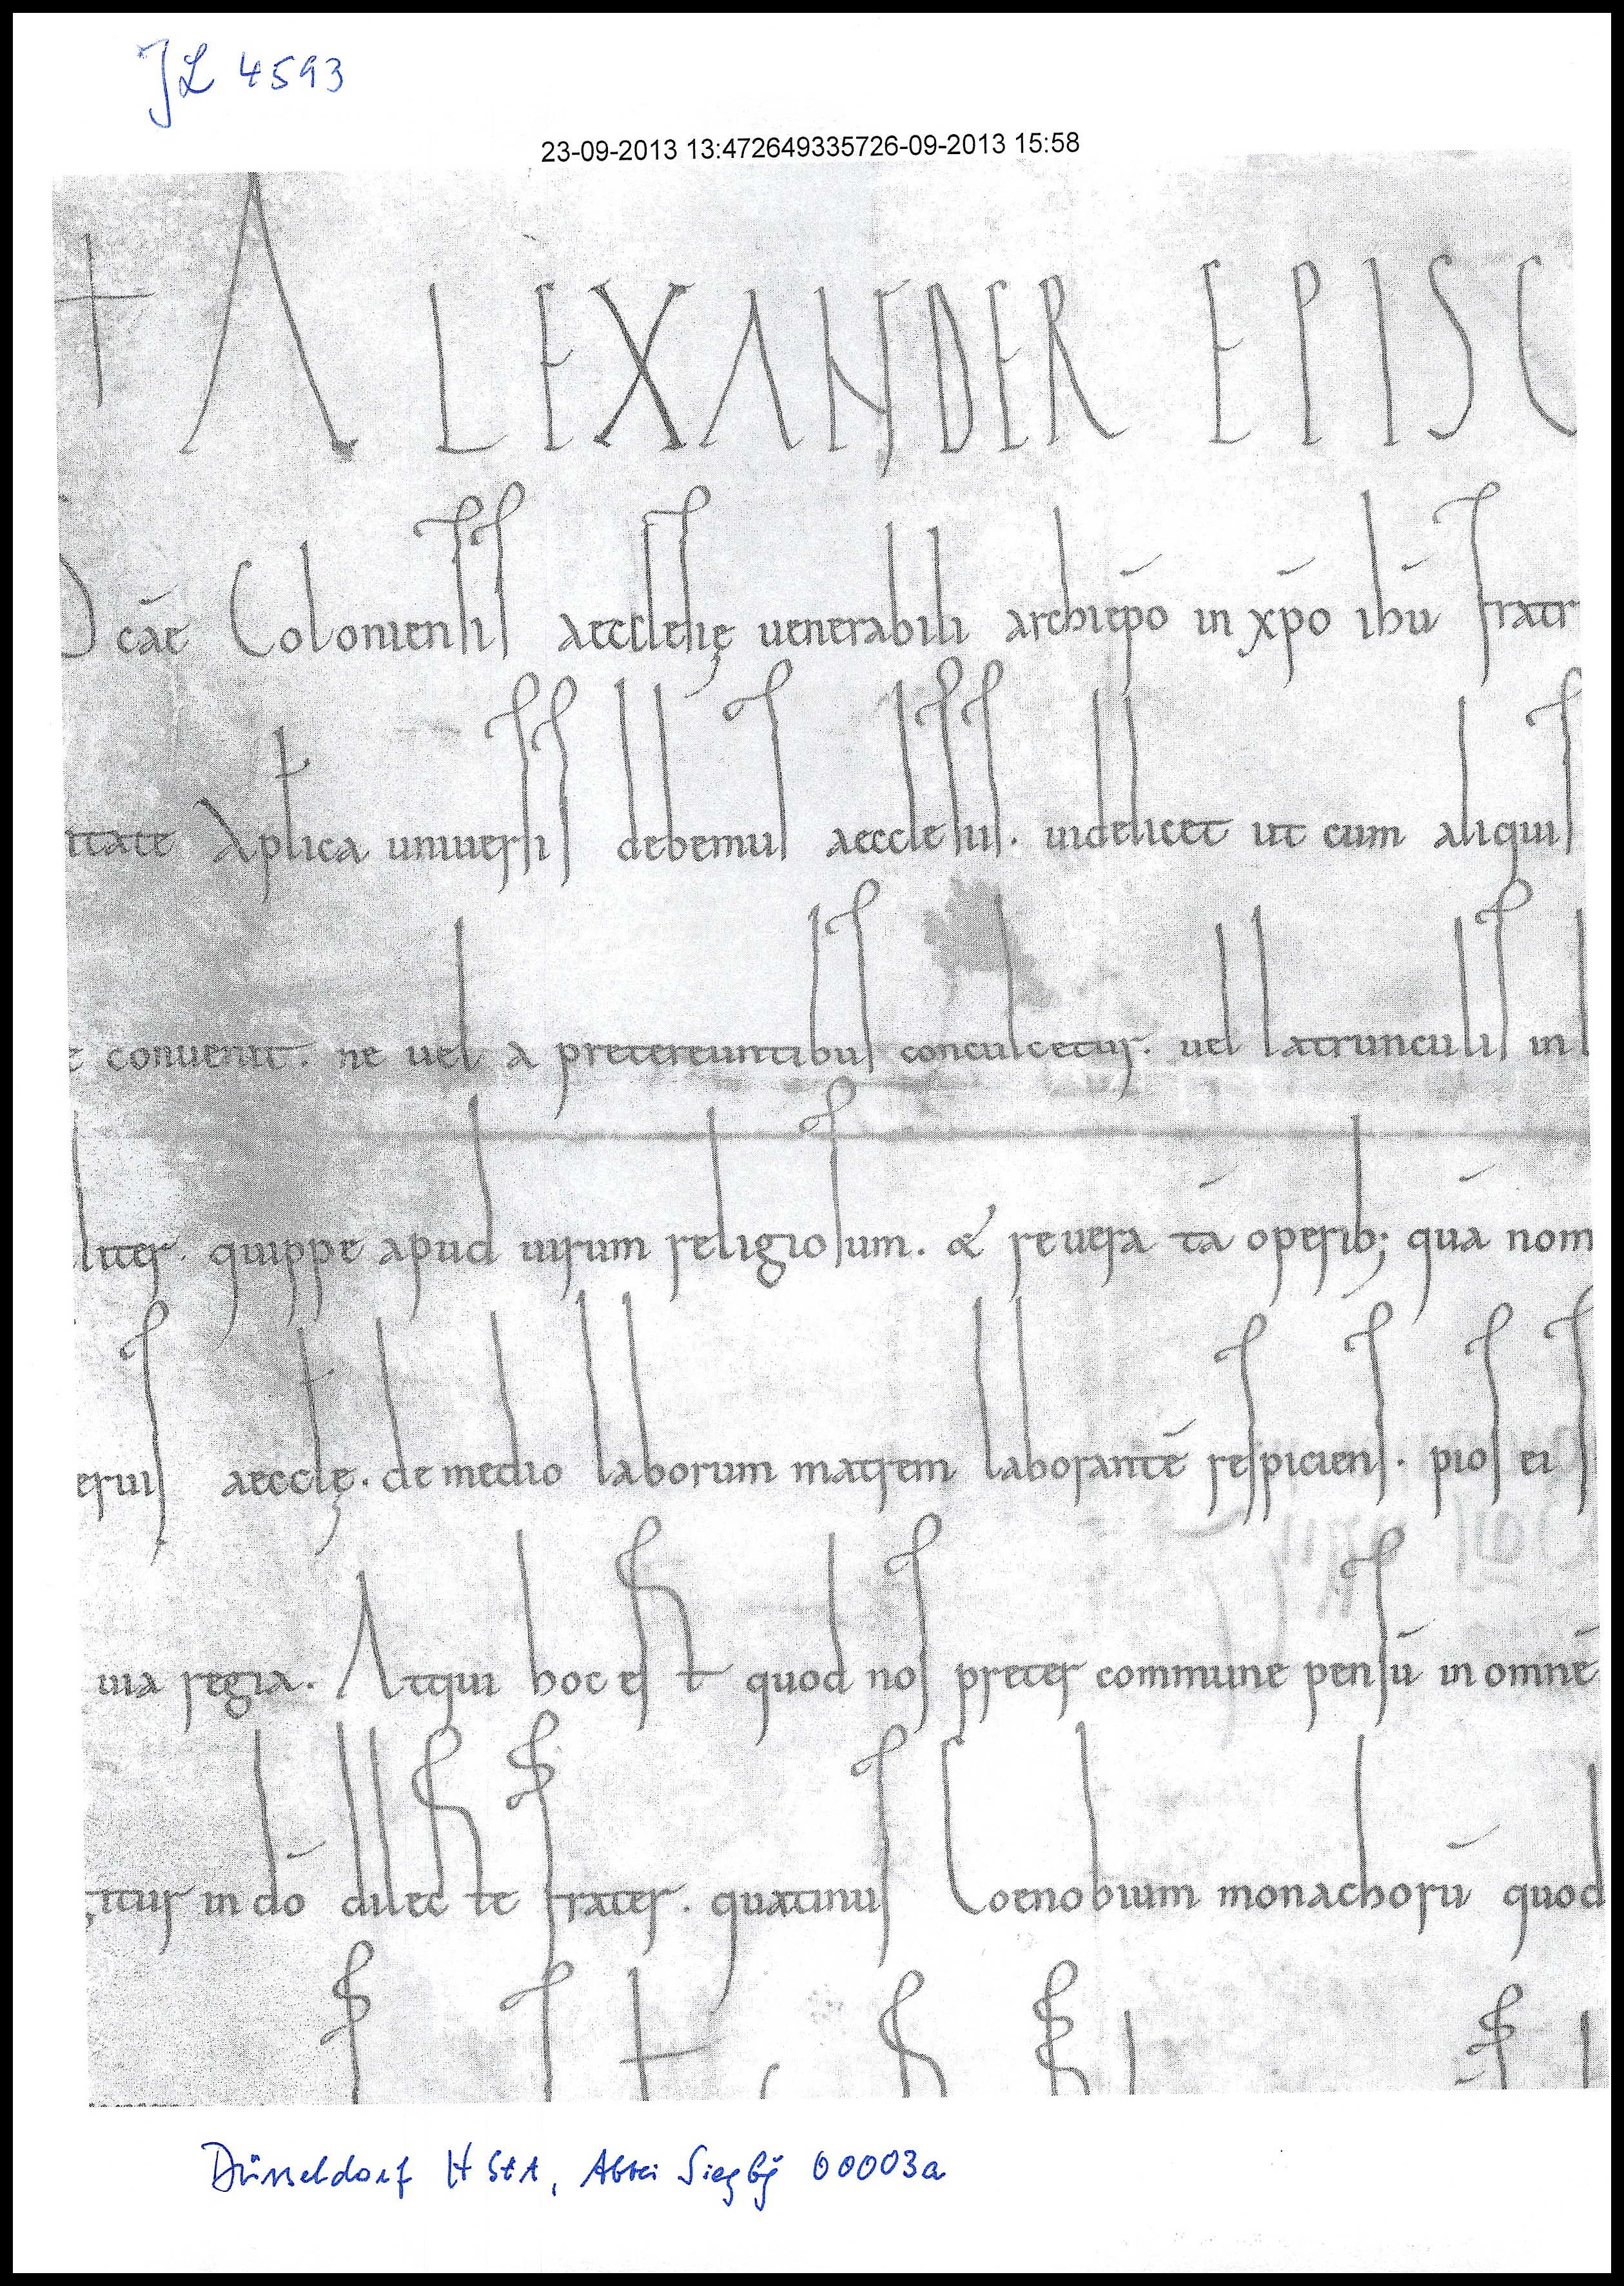 JL 4593
23-09-2013 13:472649335726-09-2013 15:58
† ALEXANDER EPISC
Scāe Coloniensis aecclesię uenerabili archiep̄o in xp̄o ihū fratr
itate Ap̄lica uniuersis debemus aecclesiis. uidelicet ut cum aliquis
e conuenit. ne uel a pretereuntibus conculcetur. uel latrunculis in
liter. quippe apud uirum religiosum. & reuera tā operib; quā nom
eruis aecclę. de medio laborum matrem laborantē respiciens. pios ei
uia regia. Atqui hoc est quod nos preter commune pensū in omnē
itur in dō dilecte frater. quatinus Coenobium monachorū quod
Düsseldorf HStA, Abtei Siegbg 00003a